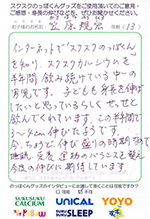 スクスクのっぽくんグッズをご使用頂いてのご意見・
ご感想・身長の伸びなどを、ぜひお聞かせください。
お子様のお名前
13
インターネットでスクスクのっぽくん
を知り、スクスクカルシウムを
半年間飲み続けている中一の
男児です。子どもも身長を伸ば
したいと思っているらしく、せっせと
飲んでくれています。この半年
3〜4cm伸びたようです。
今、ちょうど伸び盛りの時期なので
睡眠、栄養、運動のバランスを整え
今後の伸びに期待しています。
のっぽくんグッズのインタビューに出演して頂くことは可能ですか?
SUKUSUKU
CALCIUM
UNICAL
YOYO
Dr.Pillow
SUKUSUKU
SLEEP